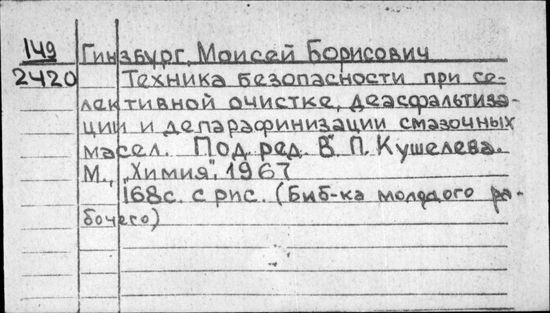 149 Гинзбург, Моисей Борисович
2420 Техника безопасности при се-
лективной очистке, деасфальтиза-
ции и депарафинизации смазочных
масел. Под ред. В. П. Кушелева.
М., „Химия", 1967
168с. с рис. (Биб-ка молодого ра-
бочего)